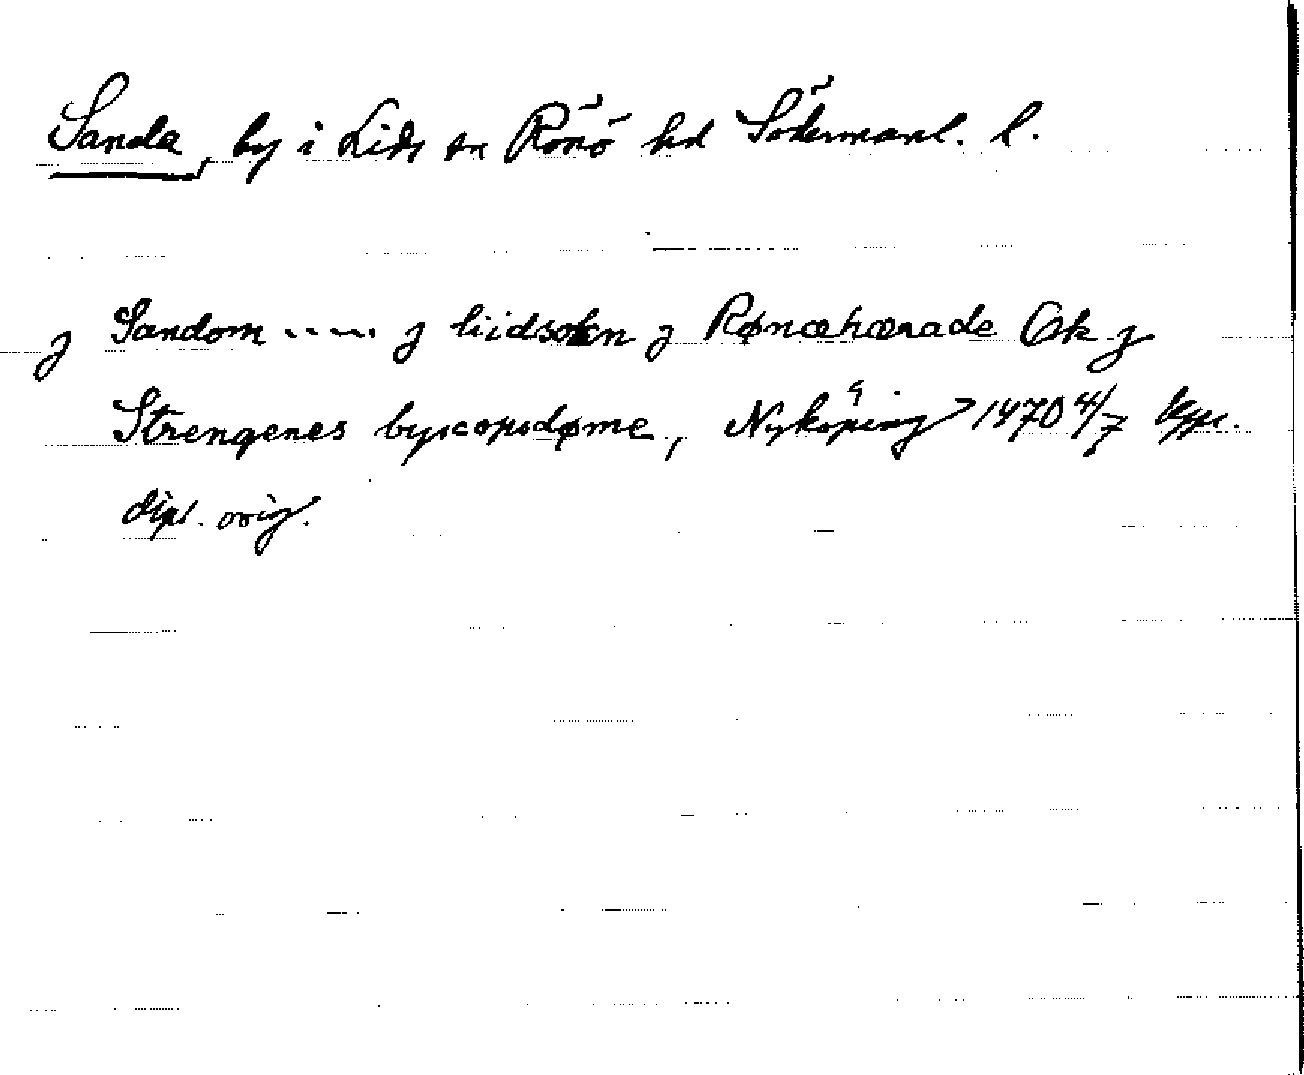 Sanda, by i Lids sn Rönö hd Södermanl. l.
j Sandom ..... j liidsokn j Rønæhærade Ok j
Strengenes byscopsdøme, Nyköping 1470 4/7 Kpr.
dipl. orig.